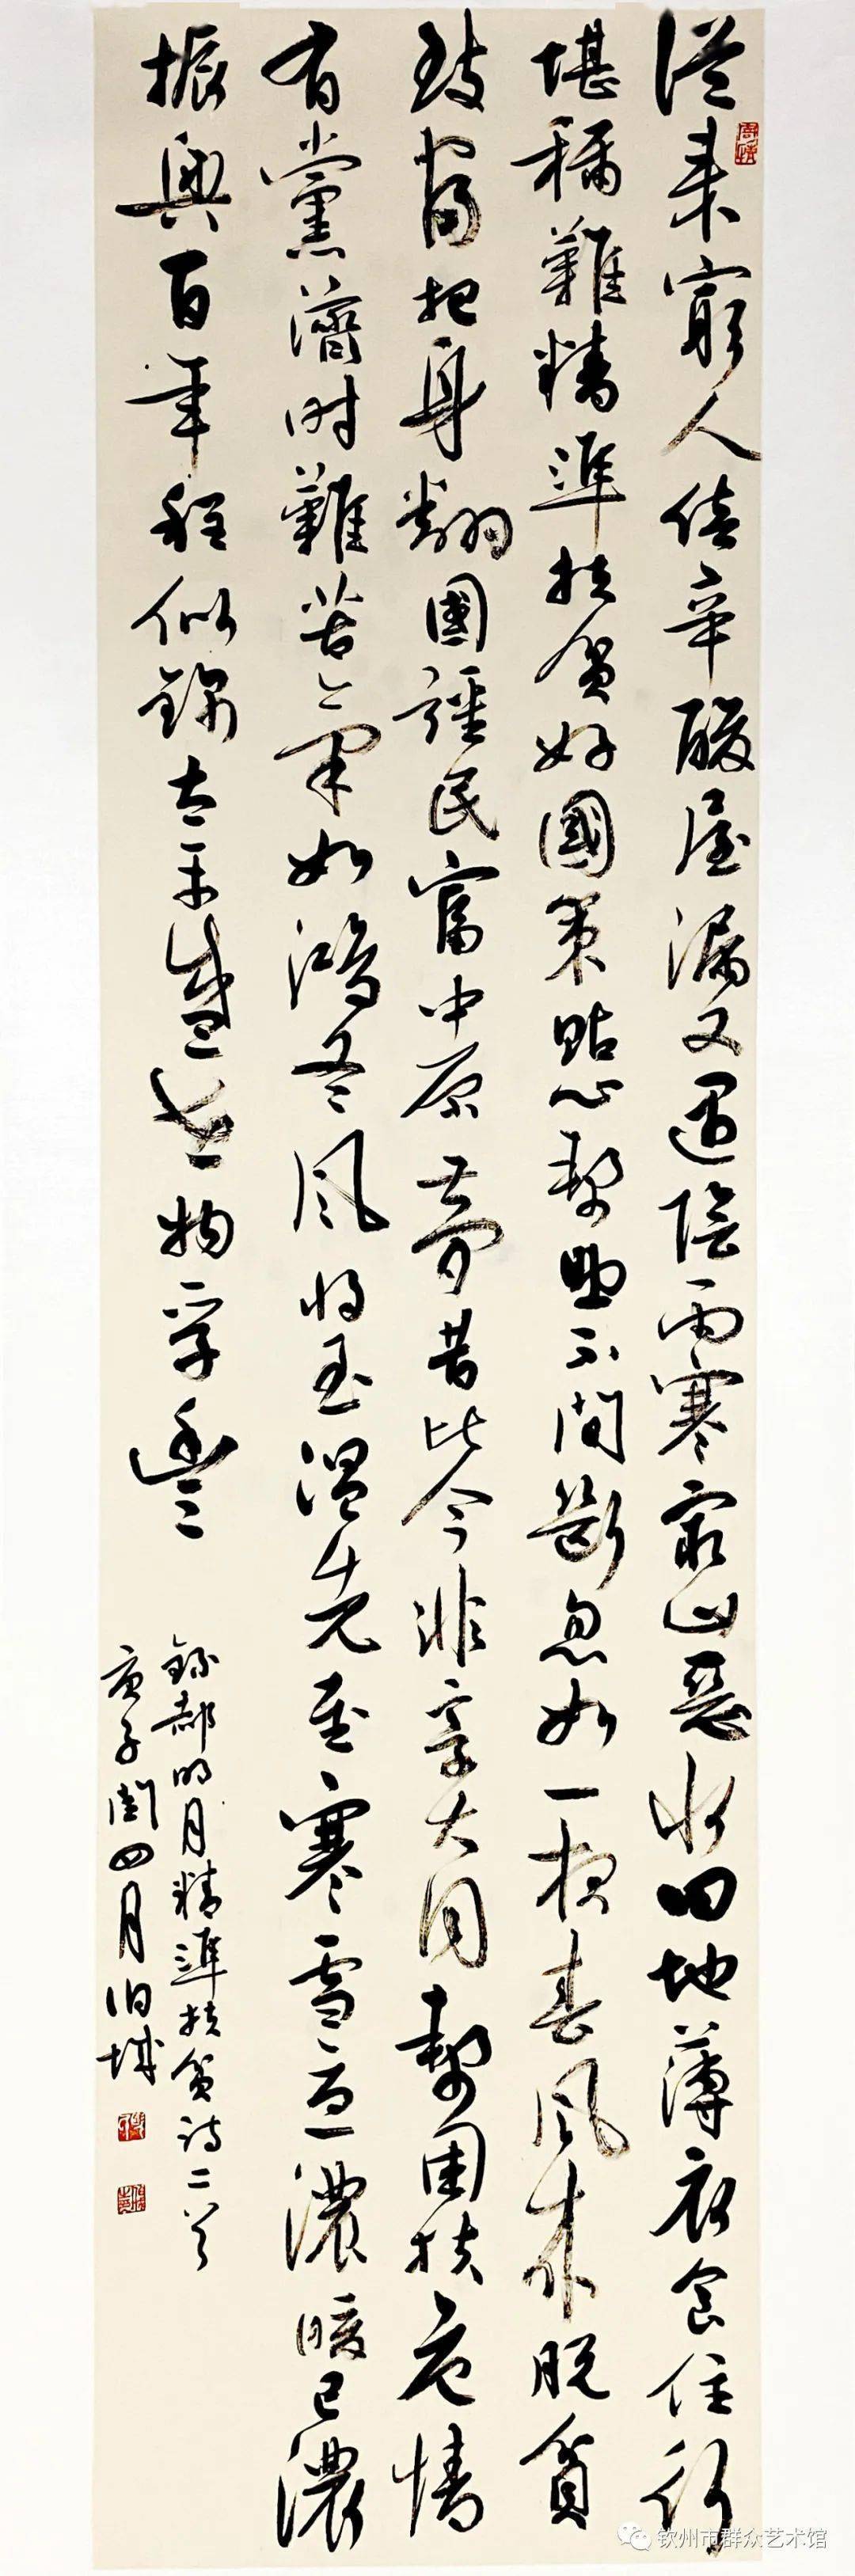 從来窮人倍辛酸屋漏又遇陰雨寒窮山惡水田地薄衣食住行
堪稱難精準扶貧好國策貼心幫助不間斷忽如一夜春風來脱貧
致富把身翻國強民富中原夢昔比今非享大同幫困扶危情
有黨濟時難苦氣如鴻冬風将至温先至寒雪意濃暖已濃
振興百年程似錦太平盛世物孚豐
録郝明月精準扶貧詩二首
庚子閏四月伯城
钦州市群众艺术馆